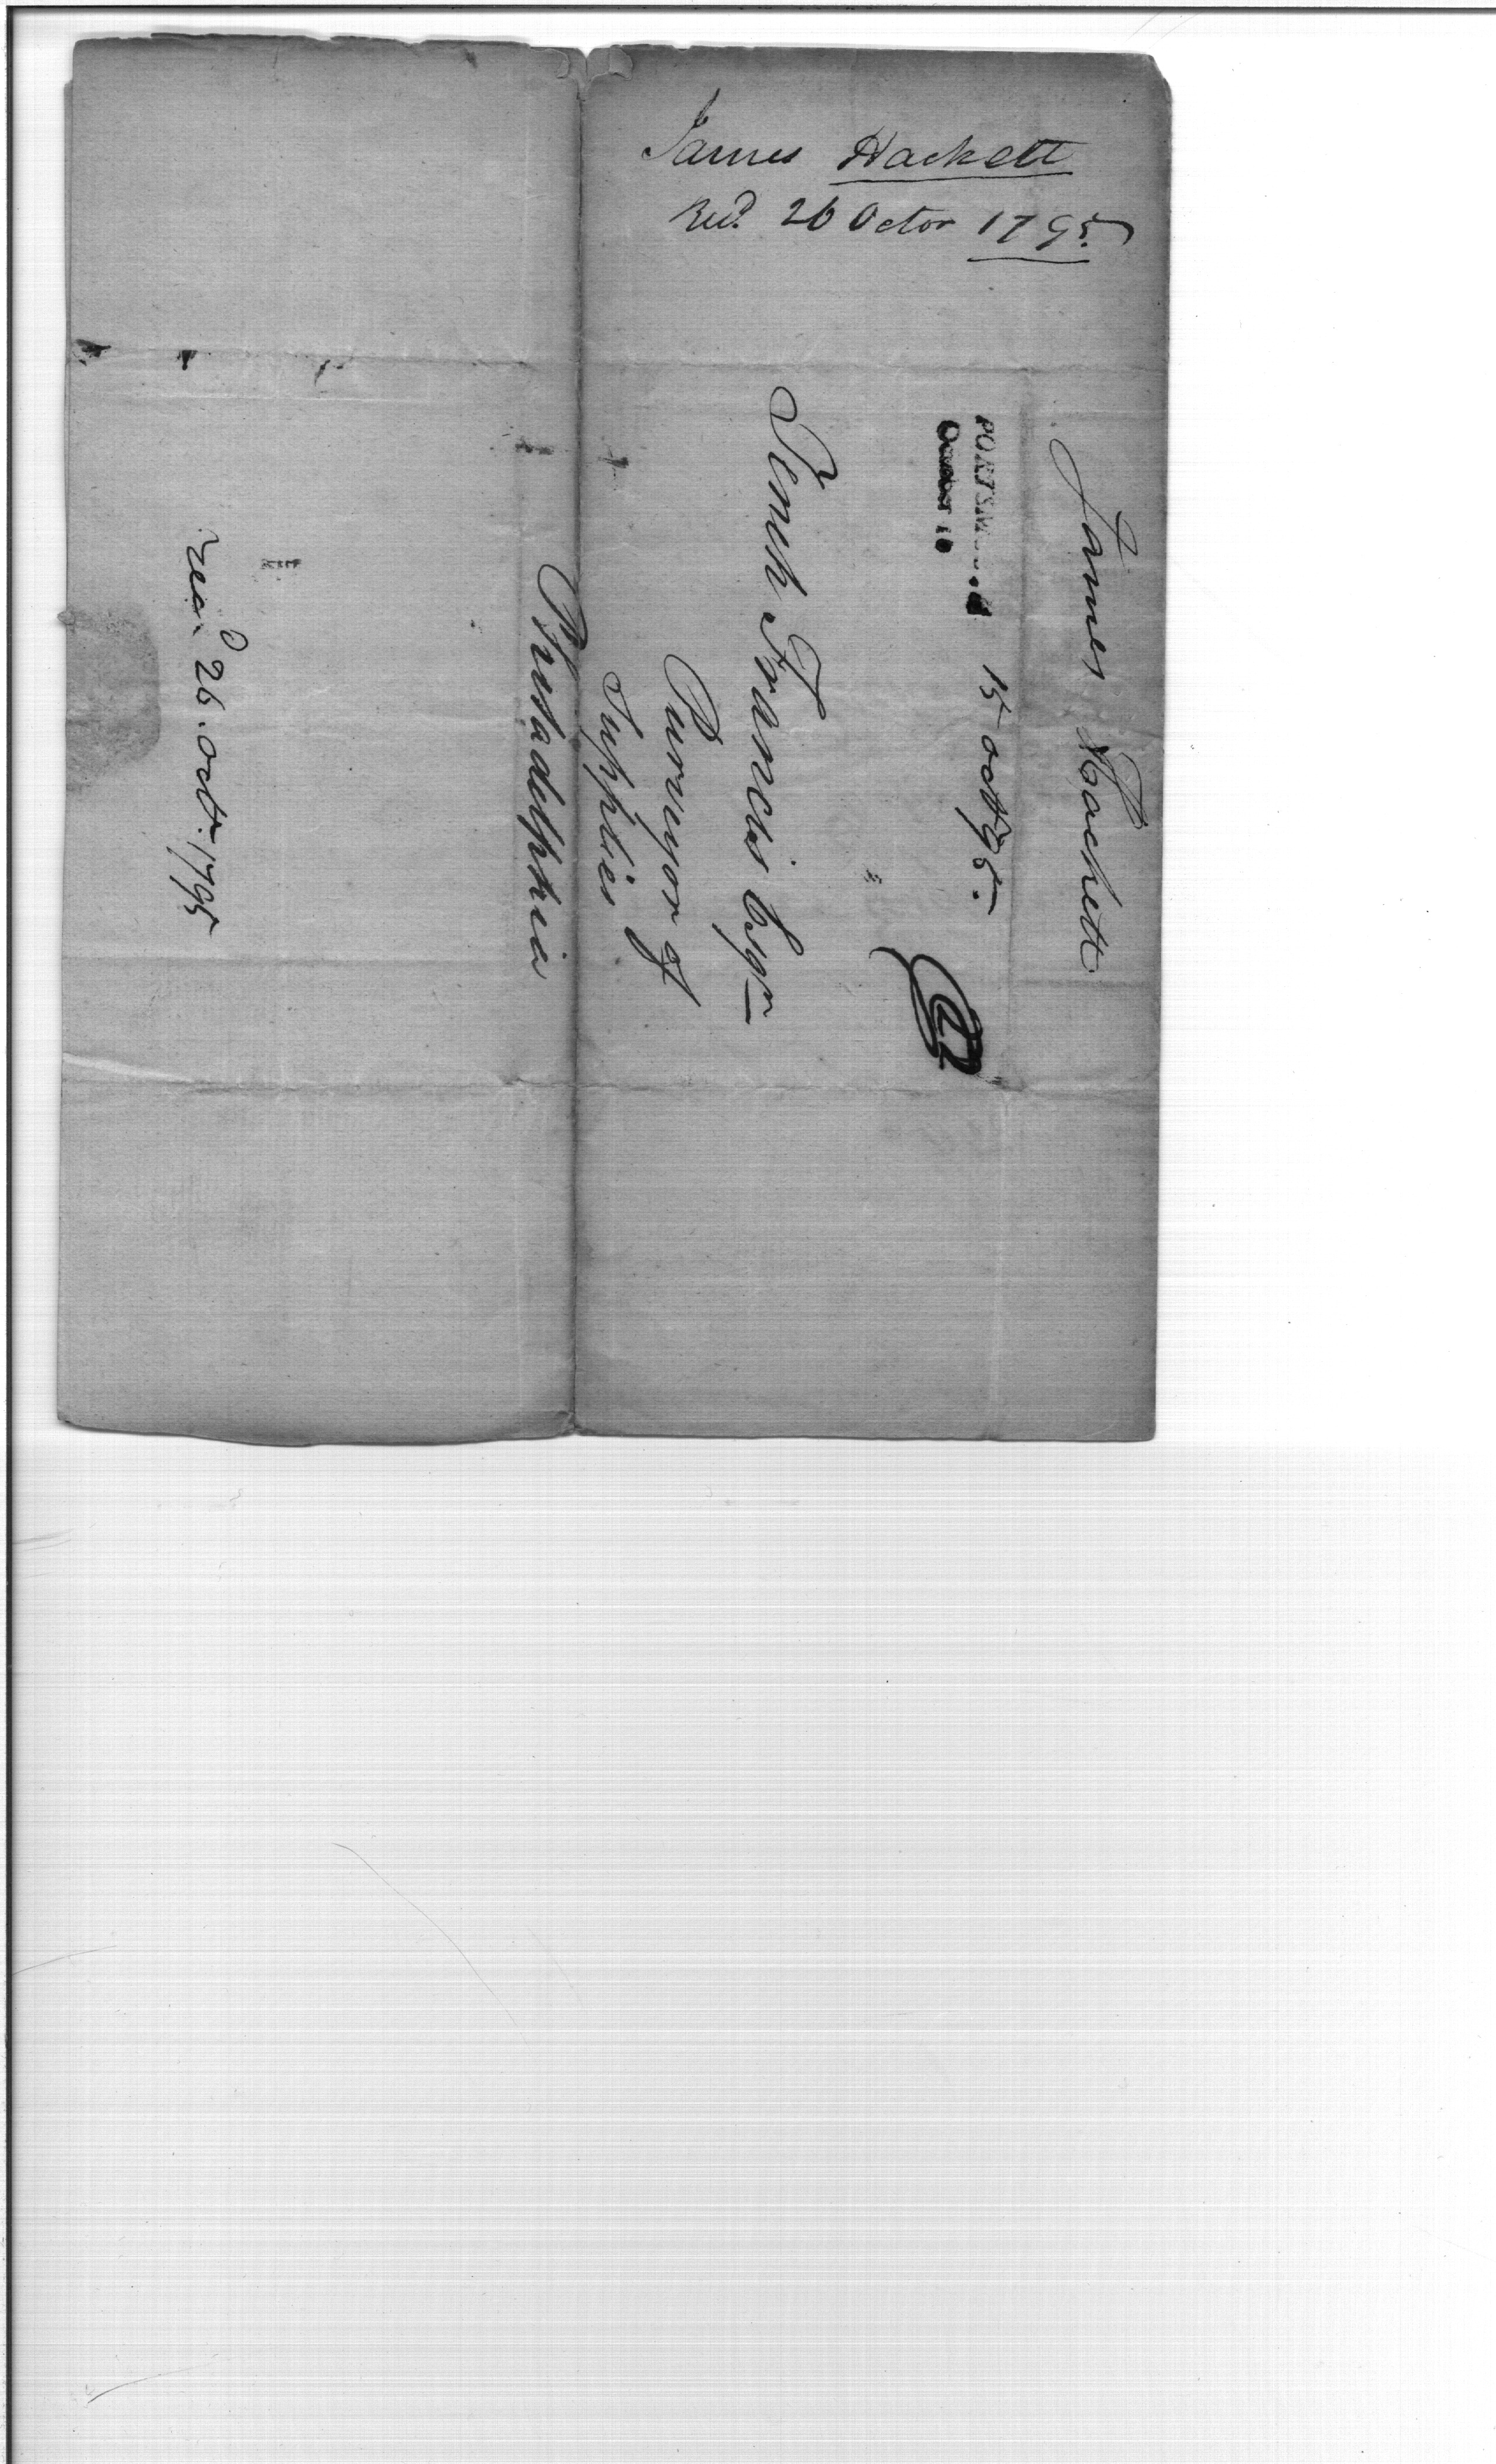 James Hackett
Recd. 26 Octor 1795.
James Hackett
15 octr 95.
PORTSM
October 1
Tench Francis Esqr
Purveyor of
Supplies
Philadelphia
recd. 26. octr. 1795